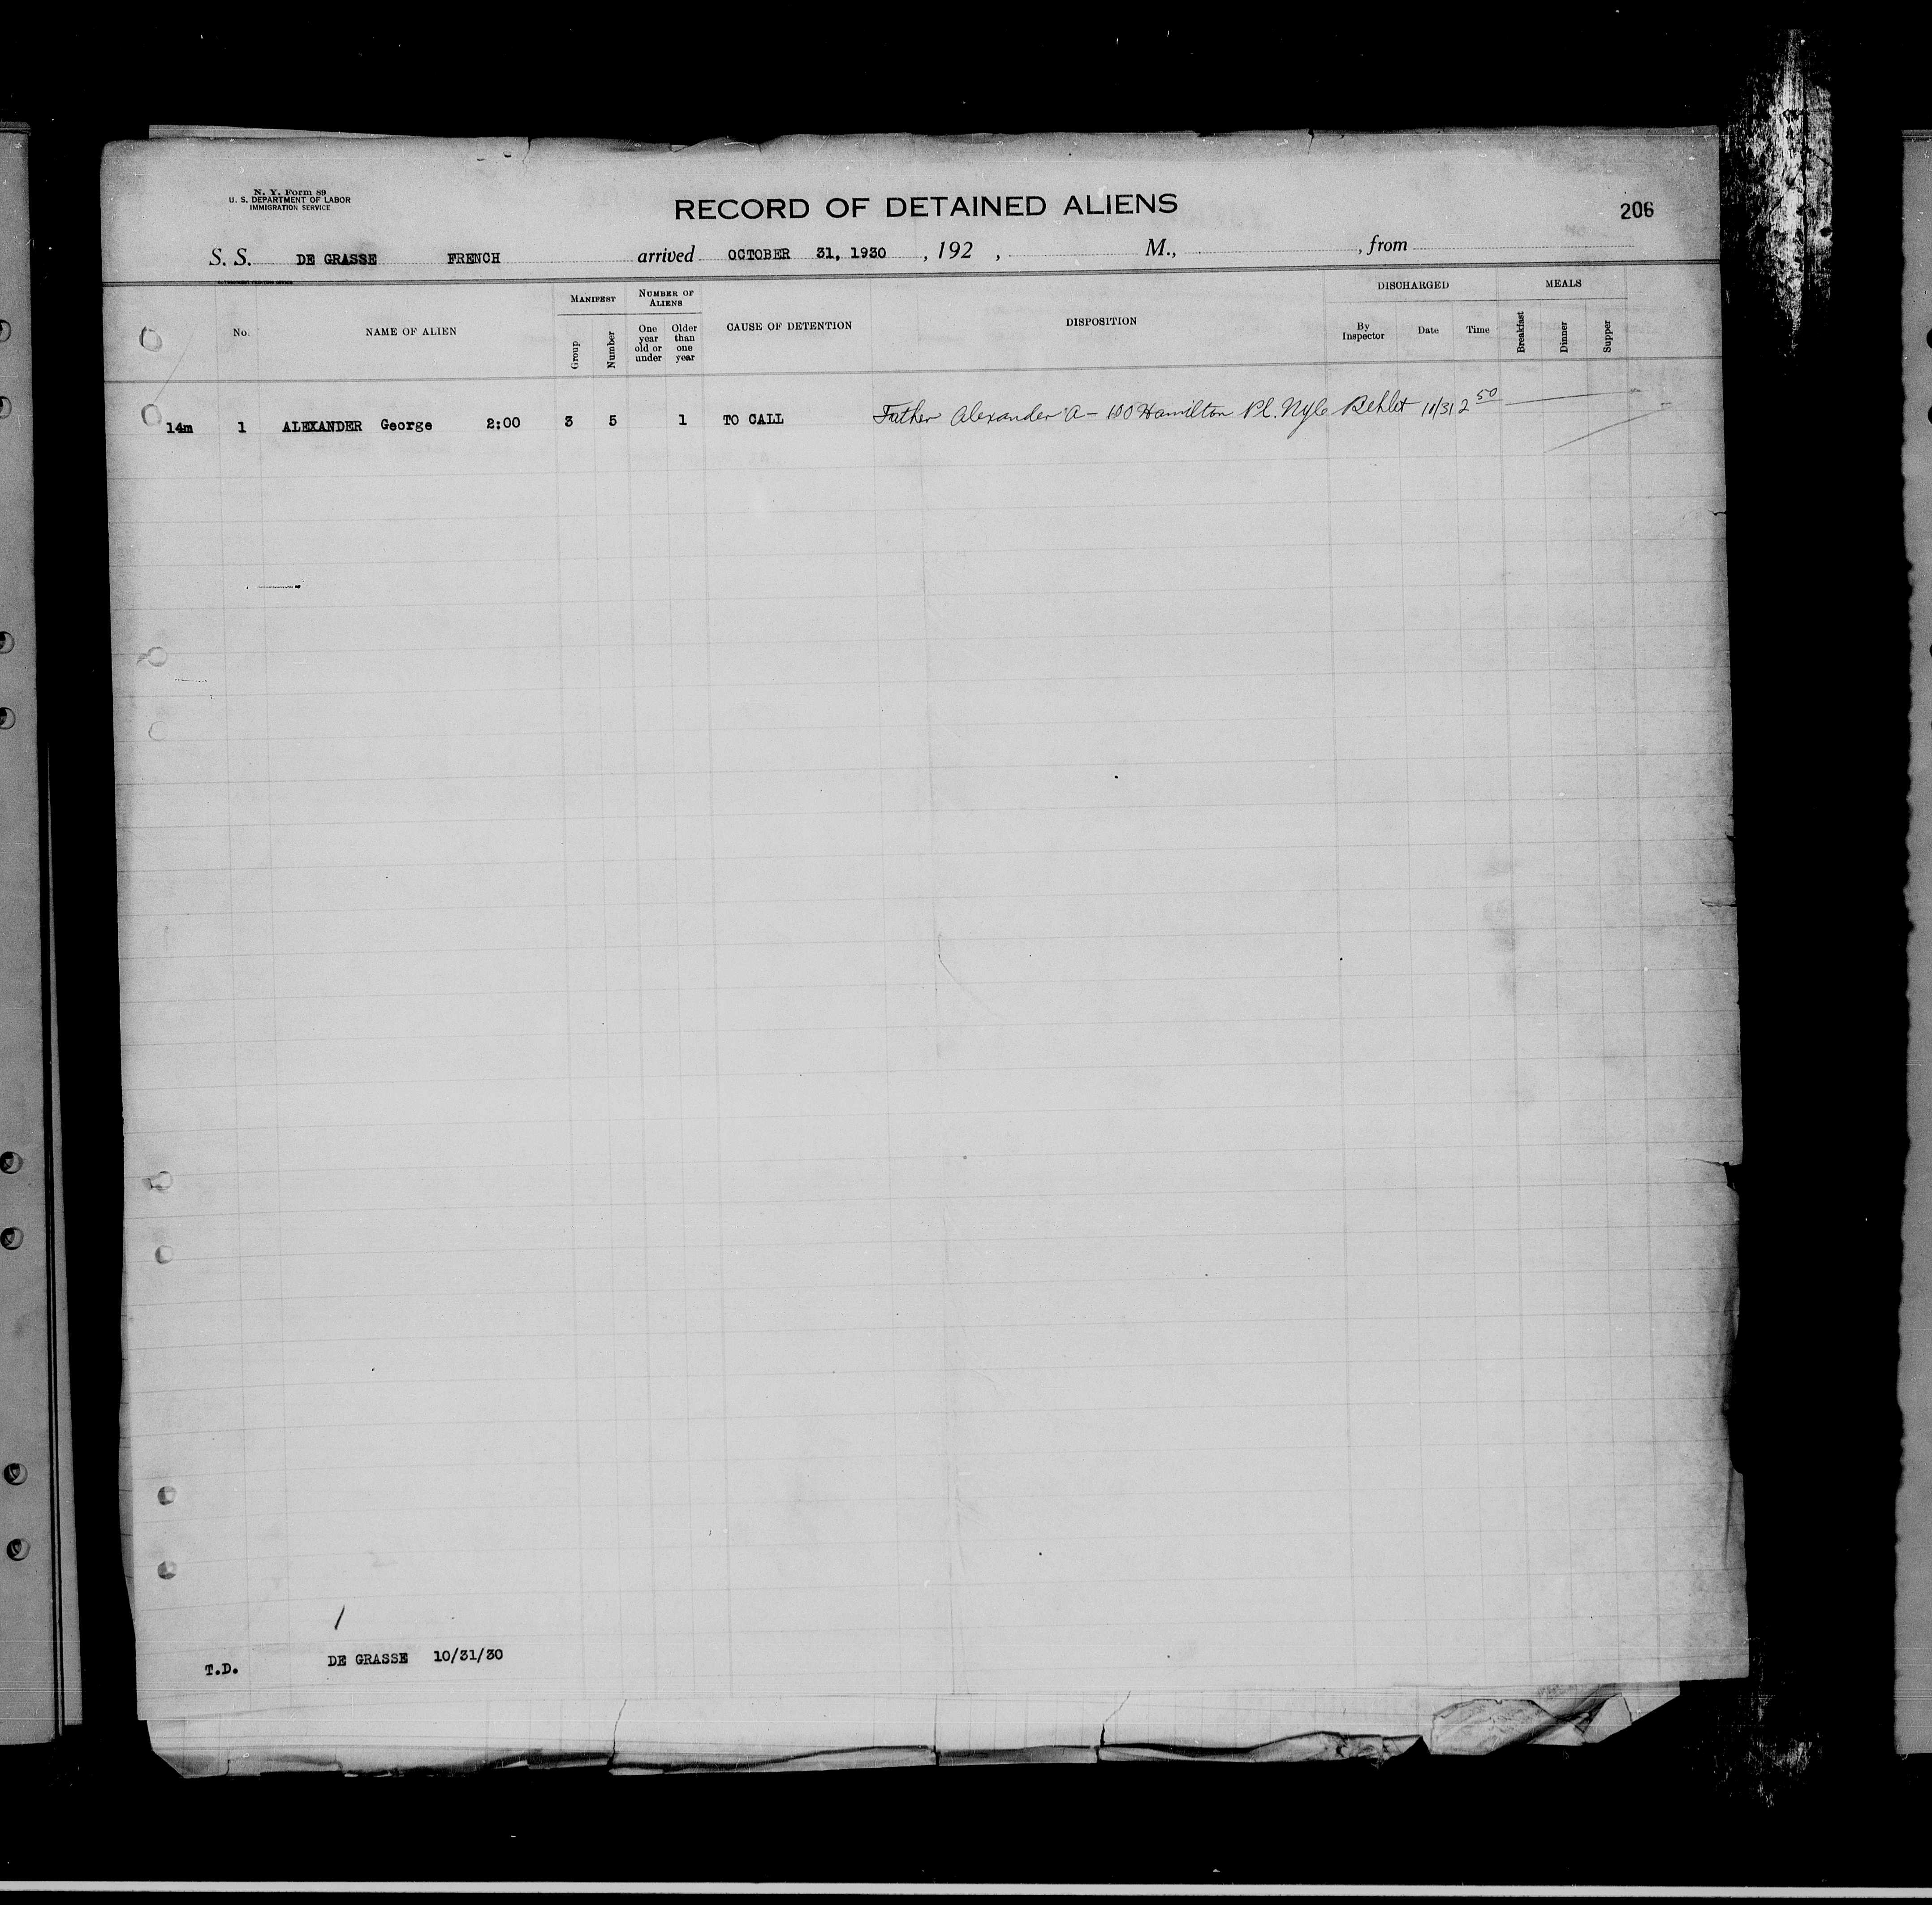 N. Y. Form 89
U. S. DEPARTMENT OF LABOR
IMMIGRATION SERVICE
RECORD OF DETAINED ALIENS
206
S. S. DE GRASSE FRENCH arrived OCTOBER 31, 1930 , 192 , M., , from
No. NAME OF ALIEN MANIFEST Group Number NUMBER OF ALIENS One year old or under Older than one year CAUSE OF DETENTION DISPOSITION DISCHARGED By Inspector Date Time MEALS Breakfast Dinner Supper
14m 1 ALEXANDER George 2:00 3 5 1 TO CALL Father Alexander A - 100 Hamilton Pl. 2 50
T.D. DE GRASSE 10/31/30